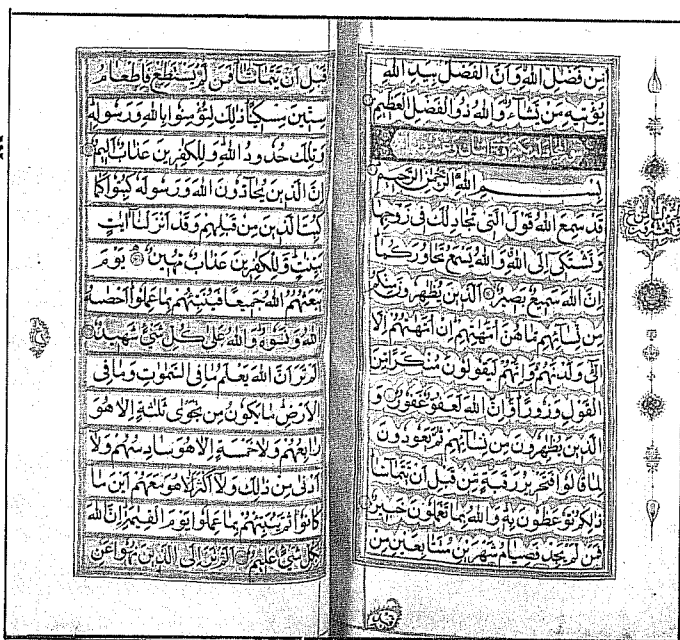 مِنْ فَضْلِ اللهِ وَاَنَّ الْفَضْلَ بِيَدِ اللهِ
يُؤْتِيهِ مَنْ يَشَاءُ وَاللهُ ذُو الْفَضْلِ الْعَظِيمِ
بِسْمِ اللهِ الرَّحْمٰنِ الرَّحِيمِ
قَدْ سَمِعَ اللهُ قَوْلَ الَّتِى تُجَادِلُكَ فِى زَوْجِهَا
وَتَشْتَكِى اِلَى اللهِ وَاللهُ يَسْمَعُ تَحَاوُرَكُمَا
اِنَّ اللهَ سَمِيعٌ بَصِيرٌ اَلَّذِينَ يُظٰهِرُونَ مِنْكُمْ
مِنْ نِسَائِهِمْ مَا هُنَّ اُمَّهٰتِهِمْ اِنْ اُمَّهٰتُهُمْ اِلَّا
الّٰئِى وَلَدْنَهُمْ وَاِنَّهُمْ لَيَقُولُونَ مُنْكَرًا مِنَ
الْقَوْلِ وَزُورًا وَاِنَّ اللهَ لَعَفُوٌّ غَفُورٌ وَ
الَّذِينَ يُظٰهِرُونَ مِنْ نِسَائِهِمْ ثُمَّ يَعُودُونَ
لِمَا قَالُوا فَتَحْرِيرُ رَقَبَةٍ مِنْ قَبْلِ اَنْ يَتَمَاسَّا
ذٰلِكُمْ تُوعَظُونَ بِهِ وَاللهُ بِمَا تَعْمَلُونَ خَبِيرٌ
فَمَنْ لَمْ يَجِدْ فَصِيَامُ شَهْرَيْنِ مُتَتَابِعَيْنِ مِنْ
قَبْلِ اَنْ يَتَمَاسَّا فَمَنْ لَمْ يَسْتَطِعْ فَاِطْعَامُ
سِتِّينَ مِسْكِينًا ذٰلِكَ لِتُؤْمِنُوا بِاللهِ وَرَسُولِهِ
وَتِلْكَ حُدُودُ اللهِ وَلِلْكٰفِرِينَ عَذَابٌ اَلِيمٌ
اِنَّ الَّذِينَ يُحَادُّونَ اللهَ وَرَسُولَهُ كُبِتُوا كَمَا
كُبِتَ الَّذِينَ مِنْ قَبْلِهِمْ وَقَدْ اَنْزَلْنَا اٰيٰتٍ
بَيِّنٰتٍ وَلِلْكٰفِرِينَ عَذَابٌ مُهِينٌ يَوْمَ
يَبْعَثُهُمُ اللهُ جَمِيعًا فَيُنَبِّئُهُمْ بِمَا عَمِلُوا اَحْصٰيهُ
اللهُ وَنَسُوهُ وَاللهُ عَلٰى كُلِّ شَىْءٍ شَهِيدٌ
اَلَمْ تَرَ اَنَّ اللهَ يَعْلَمُ مَا فِى السَّمٰوٰتِ وَمَا فِى
الْاَرْضِ مَا يَكُونُ مِنْ نَجْوٰى ثَلٰثَةٍ اِلَّا هُوَ
رَابِعُهُمْ وَلَا خَمْسَةٍ اِلَّا هُوَ سَادِسُهُمْ وَلَا
اَدْنٰى مِنْ ذٰلِكَ وَلَا اَكْثَرَ اِلَّا هُوَ مَعَهُمْ اَيْنَ مَا
كَانُوا ثُمَّ يُنَبِّئُهُمْ بِمَا عَمِلُوا يَوْمَ الْقِيٰمَةِ اِنَّ اللهَ
بِكُلِّ شَىْءٍ عَلِيمٌ اَلَمْ تَرَ اِلَى الَّذِينَ نُهُوا عَنِ